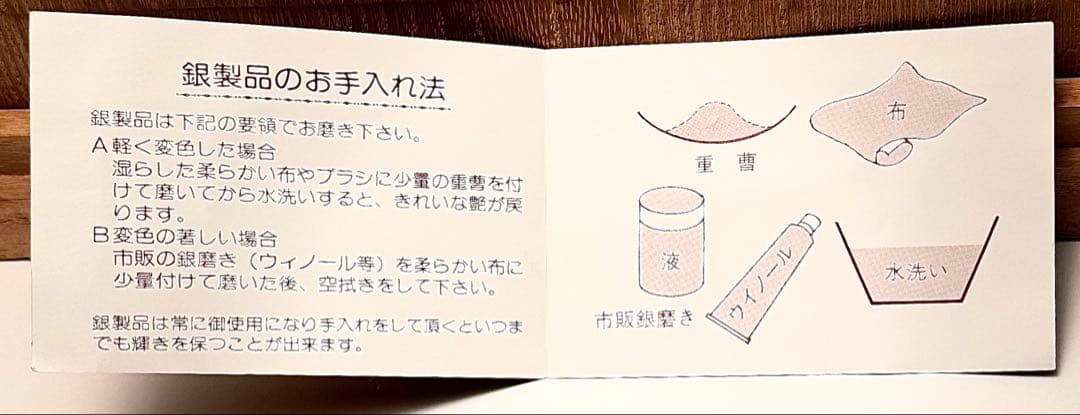 銀製品のお手入れ法
銀製品は下記の要領でお磨き下さい。
A軽く変色した場合
湿らした柔らかい布やブラシに少量の重曹を付
けて磨いてから水洗いすると、きれいな艶が戻
ります。
B変色の著しい場合
市販の銀磨き（ウィノール等）を柔らかい布に
少量付けて磨いた後、空拭きをして下さい。
銀製品は常に御使用になり手入れをして頂くといつま
でも輝きを保つことが出来ます。
布
重曹
液
ウイノール
水洗い
市販銀磨き